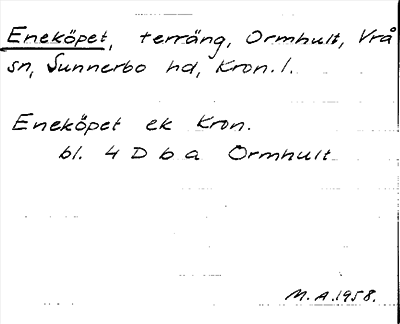 Eneköpet, terräng, Ormhult, Vrå
sn, Sunnerbo hd, Kron. l.
Eneköpet ek Kron.
bl. 4 D b a Ormhult
M. A. 1958.